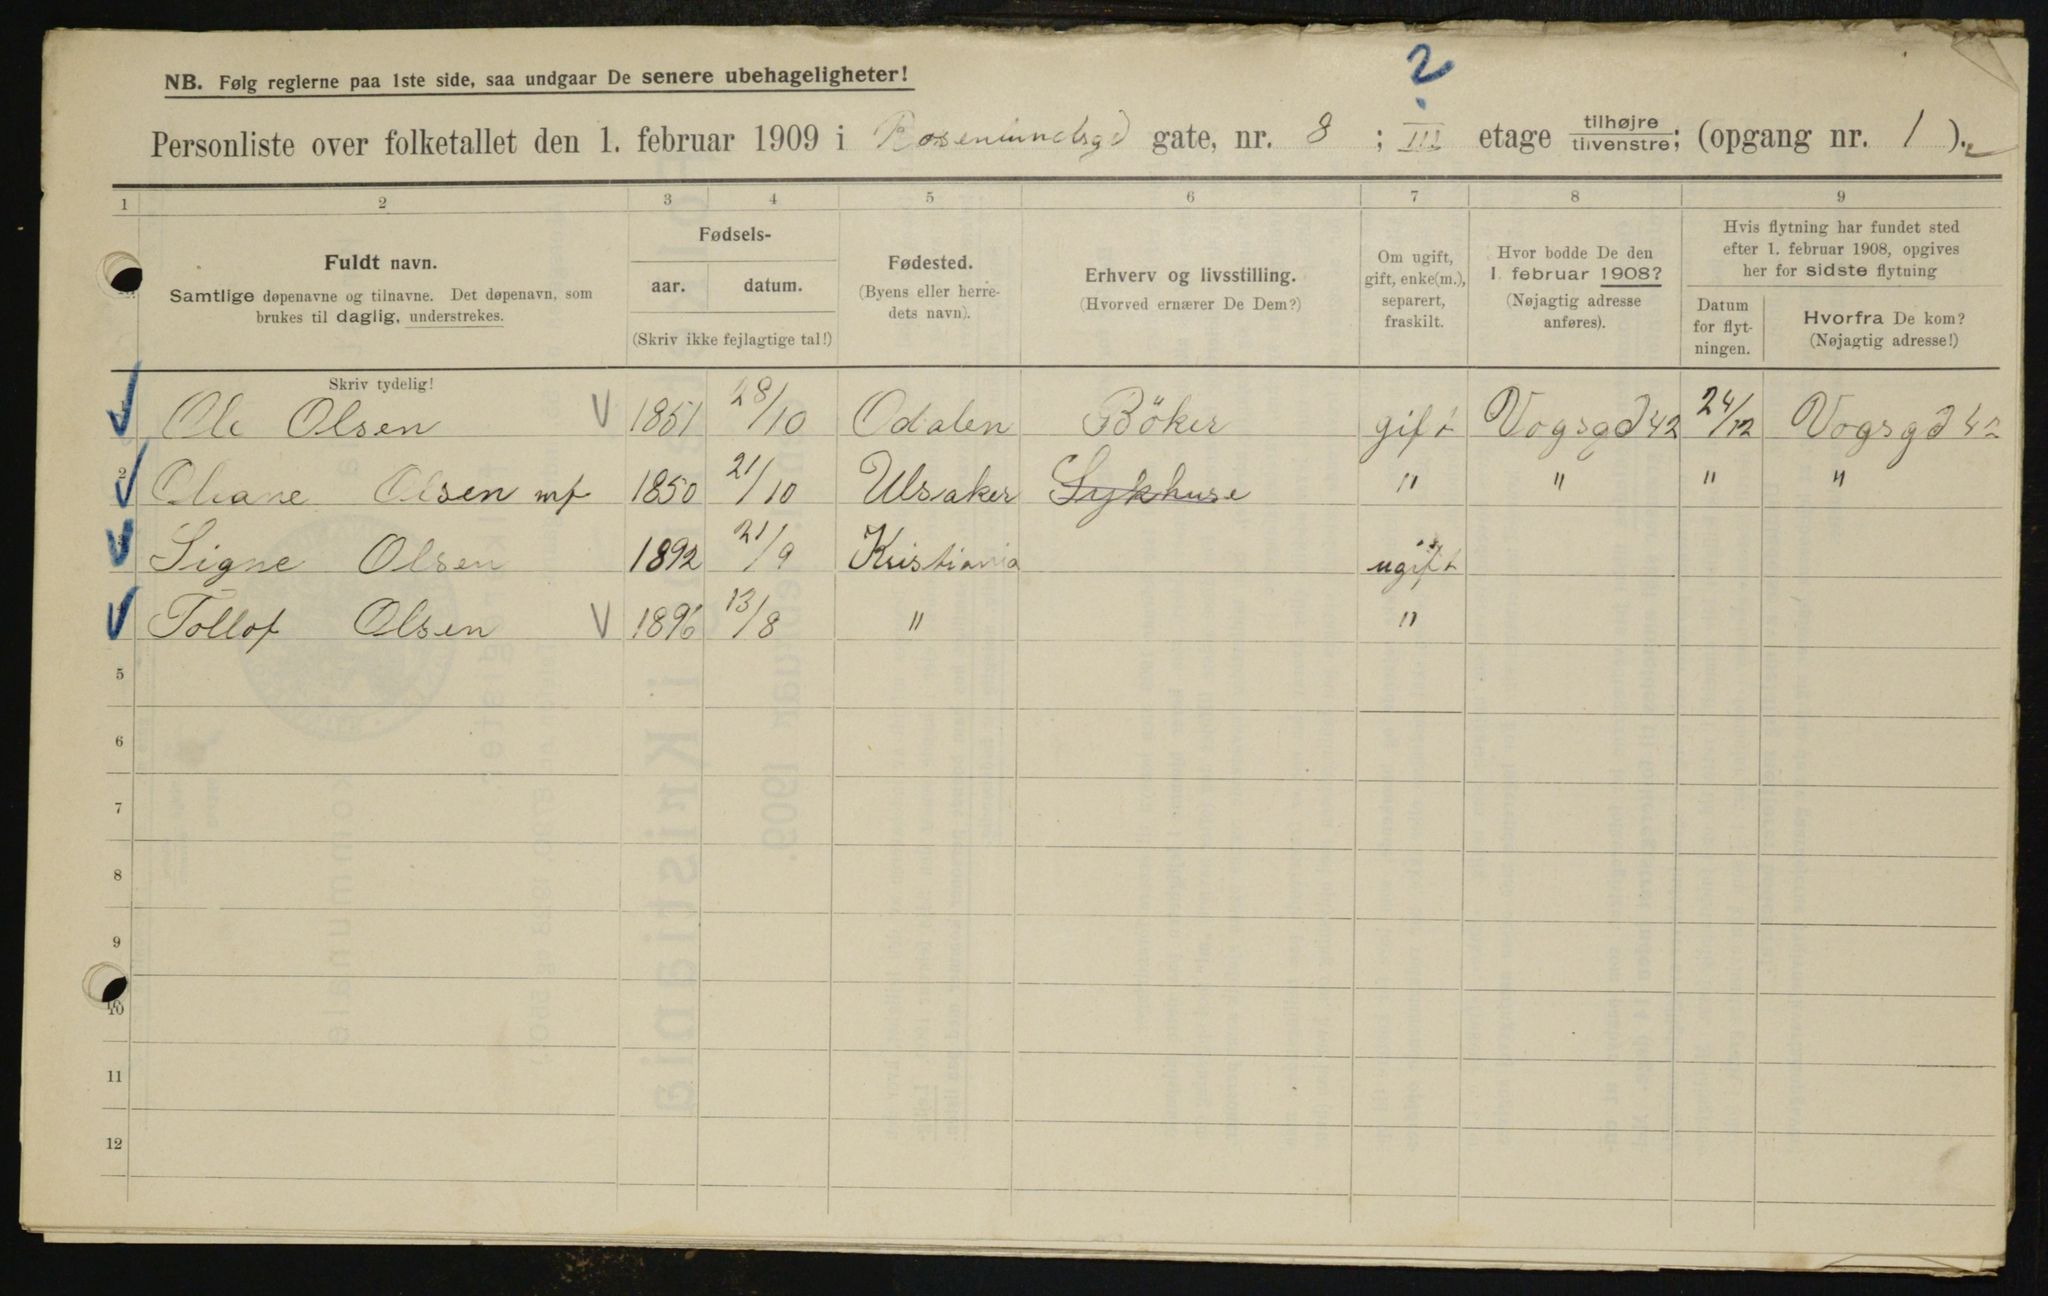 2
NB. Følg reglerne paa 1ste side, saa undgaar De senere ubehageligheter!
Personliste over folketallet den 1. februar 1909 i gate, nr. 8 ; III etage tilhøjre tilvenstre; (opgang nr. 1 ).
1 2 3 4 5 6 7 8 9
Fuldt navn.
Samtlige døpenavne og tilnavne. Det døpenavn, som
brukes til daglig, understrekes.
Skriv tydelig!
Fødsels-
aar. datum.
(Skriv ikke fejlagtige tal!)
Fødested.
(Byens eller herre-
dets navn).
Erhverv og livsstilling.
(Hvorved ernærer De Dem?)
Om ugift,
gift, enke(m.),
separert,
fraskilt.
Hvor bodde De den
1. februar 1908?
(Nøjagtig adresse
anføres).
Hvis flytning har fundet sted
efter 1. februar 1908, opgives
her for sidste flytning
Datum
for flyt-
ningen.
Hvorfra De kom?
(Nøjagtig adresse!)
Ole Olsen 1851 28/10 Odalen Böker gift Vogsgd 42 24/12 Vogsgd 42
2 Oliane Olsen 1850 21/10 Ulsaker Sykhuse " " " "
Signe Olsen 1892 21/9 Kristiania ugift
Tollof Olsen 1896 13/8 " "
5
6
7
8
9
10
11
12